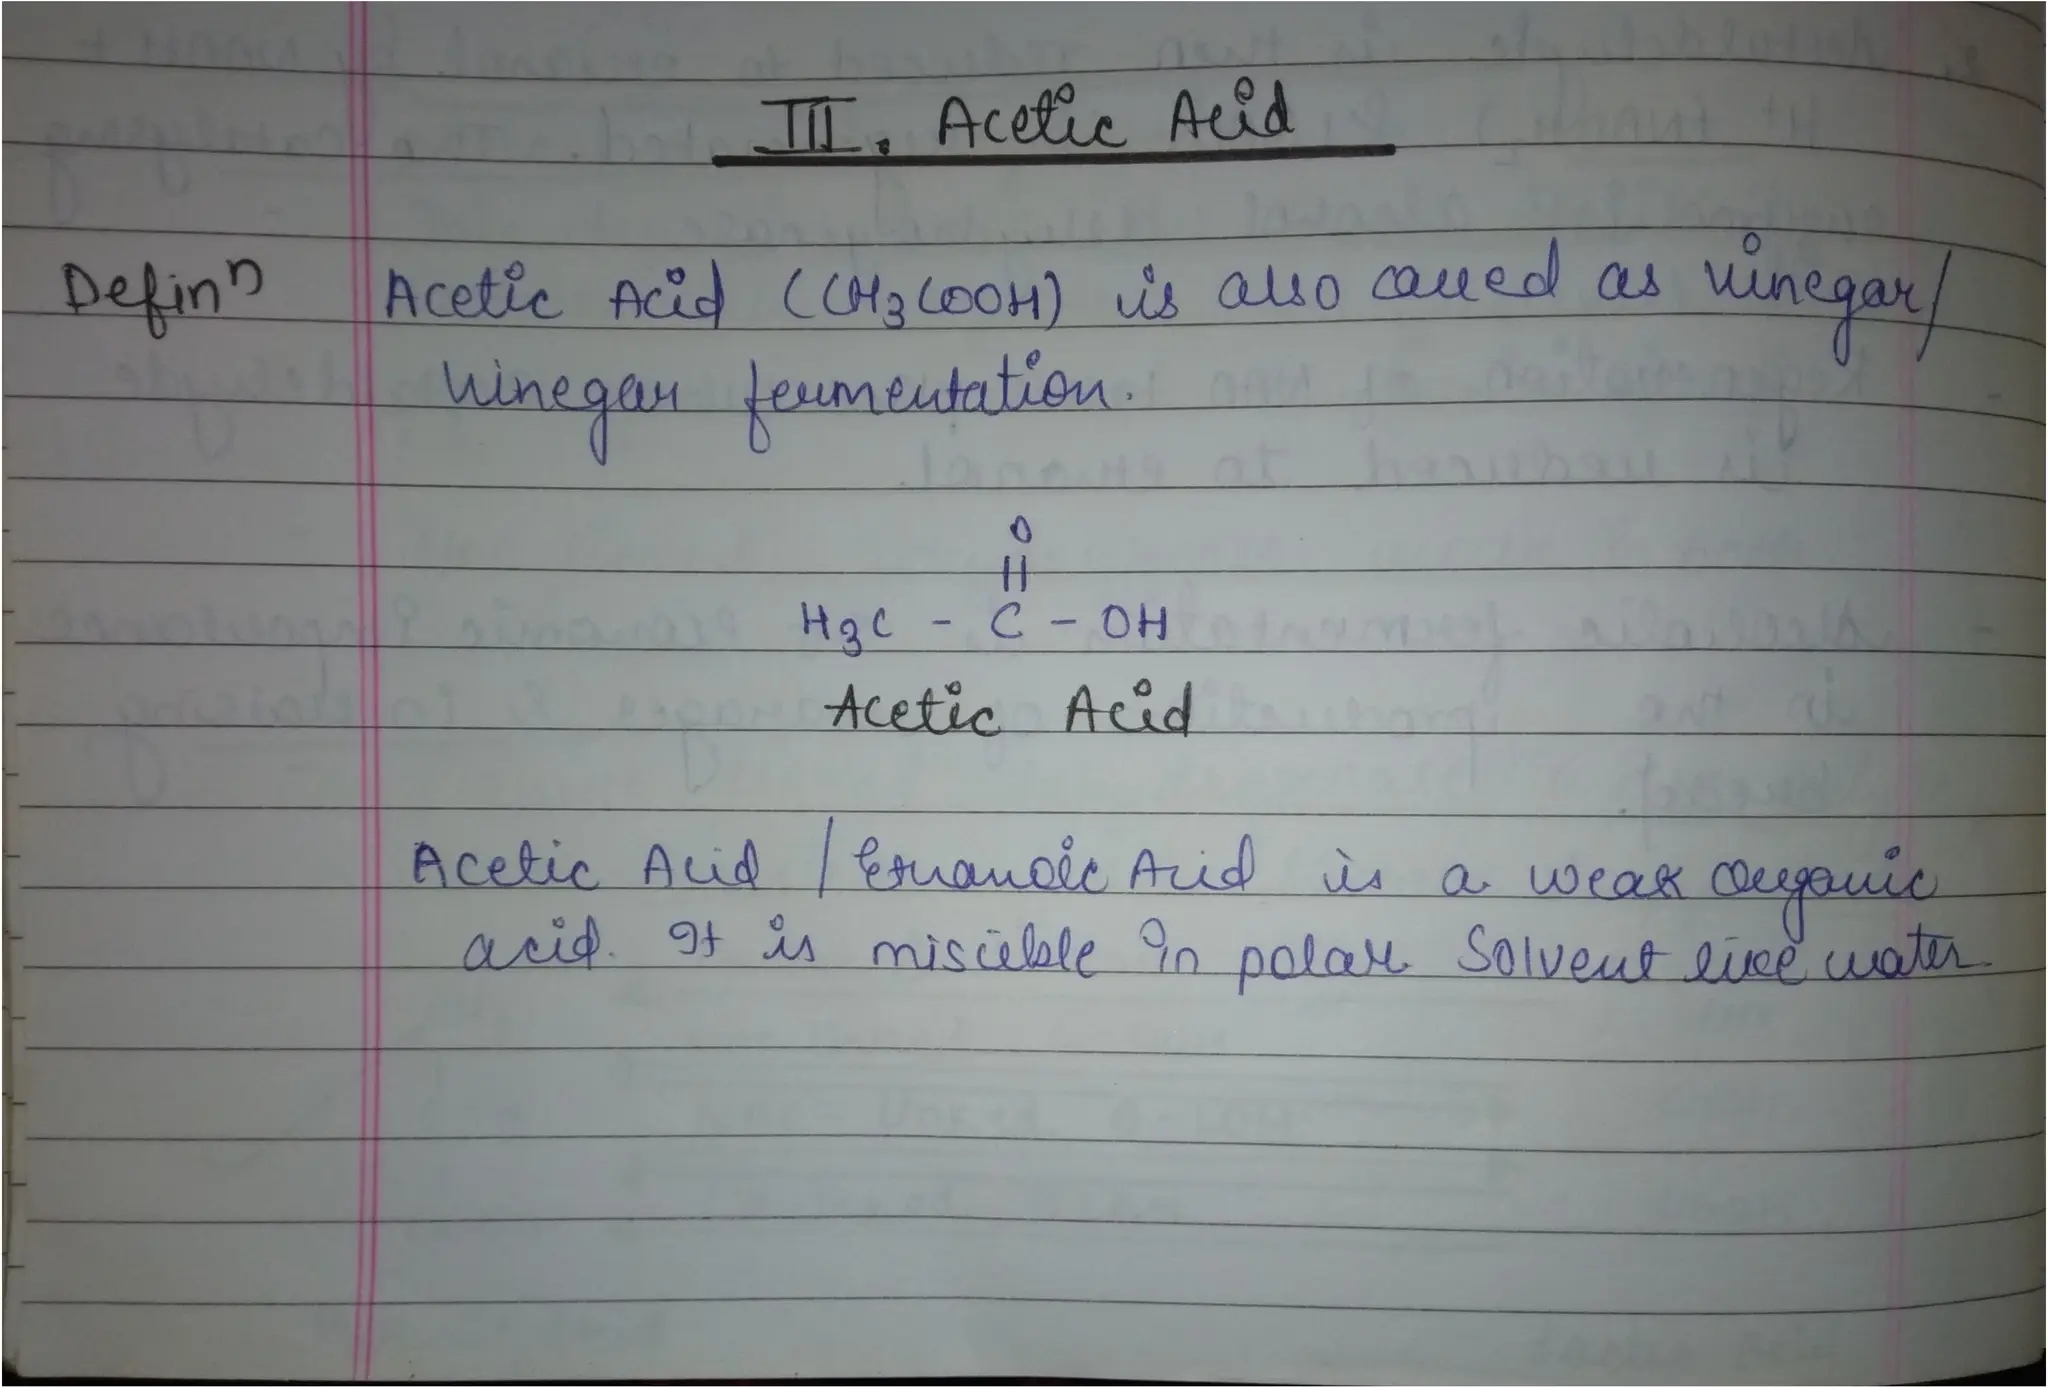 III. Acetic Acid
Definⁿ Acetic Acid (CH3COOH) is also called as vinegar/
vinegar fermentation.
O
||
H3C - C - OH
Acetic Acid
Acetic Acid / Ethanoic Acid is a weak organic
acid. It is miscible in polar Solvent like water.